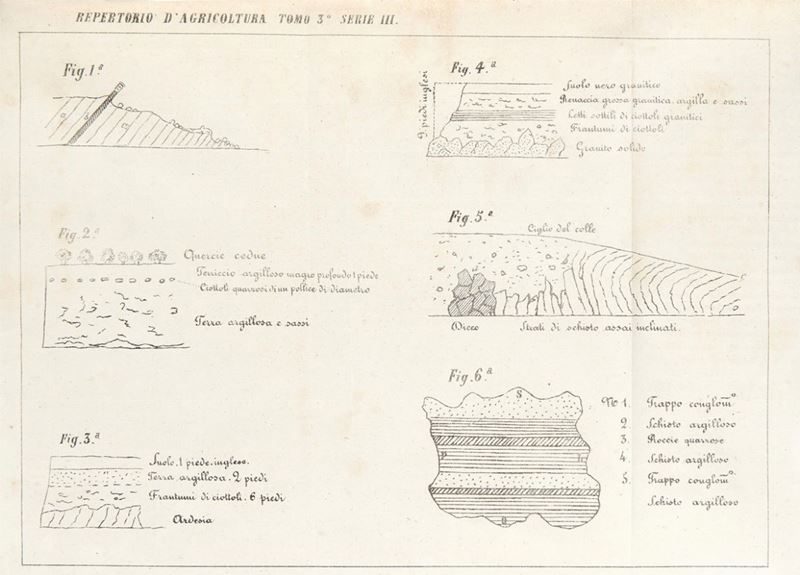 REPERTORIO D'AGRICOLTURA TOMO 3º SERIE III.
Fig. 1.ª
Fig. 2.ª
Quercie cedue
Terriccio argilloso magro profondo 1 piede
Ciottoli quarzosi di un pollice di diametro
Terra argillosa e sassi
Fig. 3.ª
Suolo. 1 piede. inglese.
Terra argillosa. 2 piedi
Frantumi di ciottoli. 6 piedi
Ardesia
Fig. 4.ª
9 piedi inglesi
Suolo nero granitico
Renaccia grossa granitica, argilla e sassi
Letti sottili di ciottoli granitici
Frantumi di ciottoli
Granito solido
Fig. 5.ª
Ciglio del colle
Dicco
Strati di schisto assai inclinati.
Fig. 6.ª
S
Nº 1. Trappo conglomº
2. Schisto argilloso
3. Roccie quarzose
4. Schisto argilloso
5. Trappo conglomº
Schisto argilloso